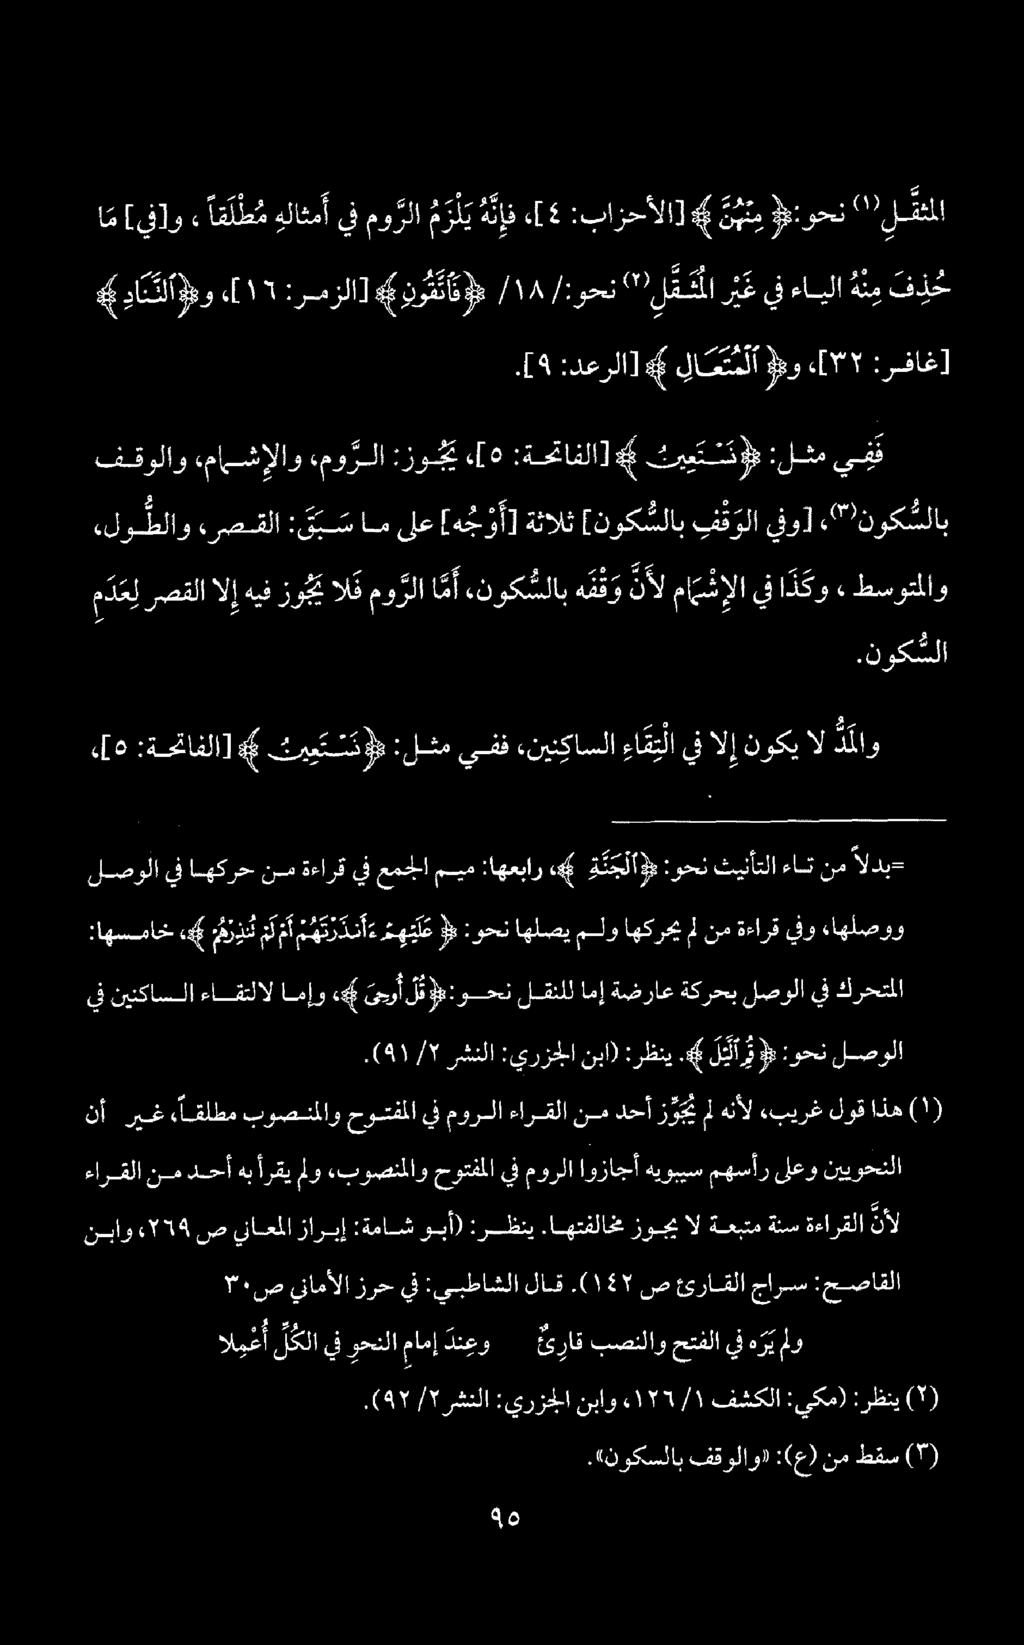 المثقَّلِ(١) نحو: ﴿مِنْهُنَّ﴾ [الأحزاب: ٤]، فإنَّهُ يَلْزَمُ الرَّوم في أمثالهِ مُطْلَقَاً، و[في] مَا
حُذِفَ مِنْهُ الياء في غَيْرِ المُثَقَّلِ(٢) نحو:/ ١٨/ ﴿فَاتَّقُونِ﴾ [الزمر: ١٦]، و﴿التَّنَادِ﴾
[غافر: ٣٢]، و﴿الْمُتَعَالِ﴾ [الرعد: ٩].
فَفِي مثل: ﴿نَسْتَعِينُ﴾ [الفاتحة: ٥]، يَجُوز: الرَّوم، والإشمام، والوقف
بالسُّكون(٣)، [وفي الوَقْفِ بالسُّكون] ثلاثة [أَوْجُه] على ما سَبَقَ: القصر، والطُّول،
والمتوسط، وكَذَا في الإشْمَام لأَنَّ وَقْفَه بالسُّكون، أمَّا الرَّوم فَلا يَجُوز فيه إلا القصر لِعَدَمِ
السُّكون.
والمَدُّ لا يكون إلا في الْتِقَاءِ الساكنين، ففي مثل: ﴿نَسْتَعِينُ﴾ [الفاتحة: ٥]،
=بدلاً من تاء التأنيث نحو: ﴿الْجَنَّةِ﴾، رابعها: ميم الجمع في قراءة من حركها في الوصل
ووصلها، وفي قراءة من لم يحركها ولم يصلها نحو: ﴿عَلَيْهِمْ ءَأَنذَرْتَهُمْ أَمْ لَمْ تُنذِرْهُمْ﴾، خامسها:
المتحرك في الوصل بحركة عارضة إما للنقل نحو: ﴿قُلْ أُوحِىَ﴾، وإما لالتقاء الساكنين في
الوصل نحو: ﴿قُمِ الَّيْلَ﴾. ينظر: (ابن الجزري: النشر ٢/ ٩١).
(١) هذا قول غريب، لأنه لم يُجَوِّز أحد من القراء الروم في المفتوح والمنصوب مطلقاً، غير أن
النحويين وعلى رأسهم سيبويه أجازوا الروم في المفتوح والمنصوب، ولم يقرأ به أحد من القراء
لأنَّ القراءة سنة متبعة لا يجوز مخالفتها. ينظر: (أبو شامة: إبراز المعاني ص ٢٦٩، وابن
القاصح: سراج القارئ ص ١٤٢). قال الشاطبي: في حرز الأماني ص٣٠
ولم يَرَهُ في الفتح والنصب قارِئٌ وعِندَ إمامِ النحوِ في الكُلِّ أُعْمِلا
(٢) ينظر: (مكي: الكشف ١/ ١٢٦، وابن الجزري: النشر٢/ ٩٢).
(٣) سقط من (ع): «والوقف بالسكون».
٩٥